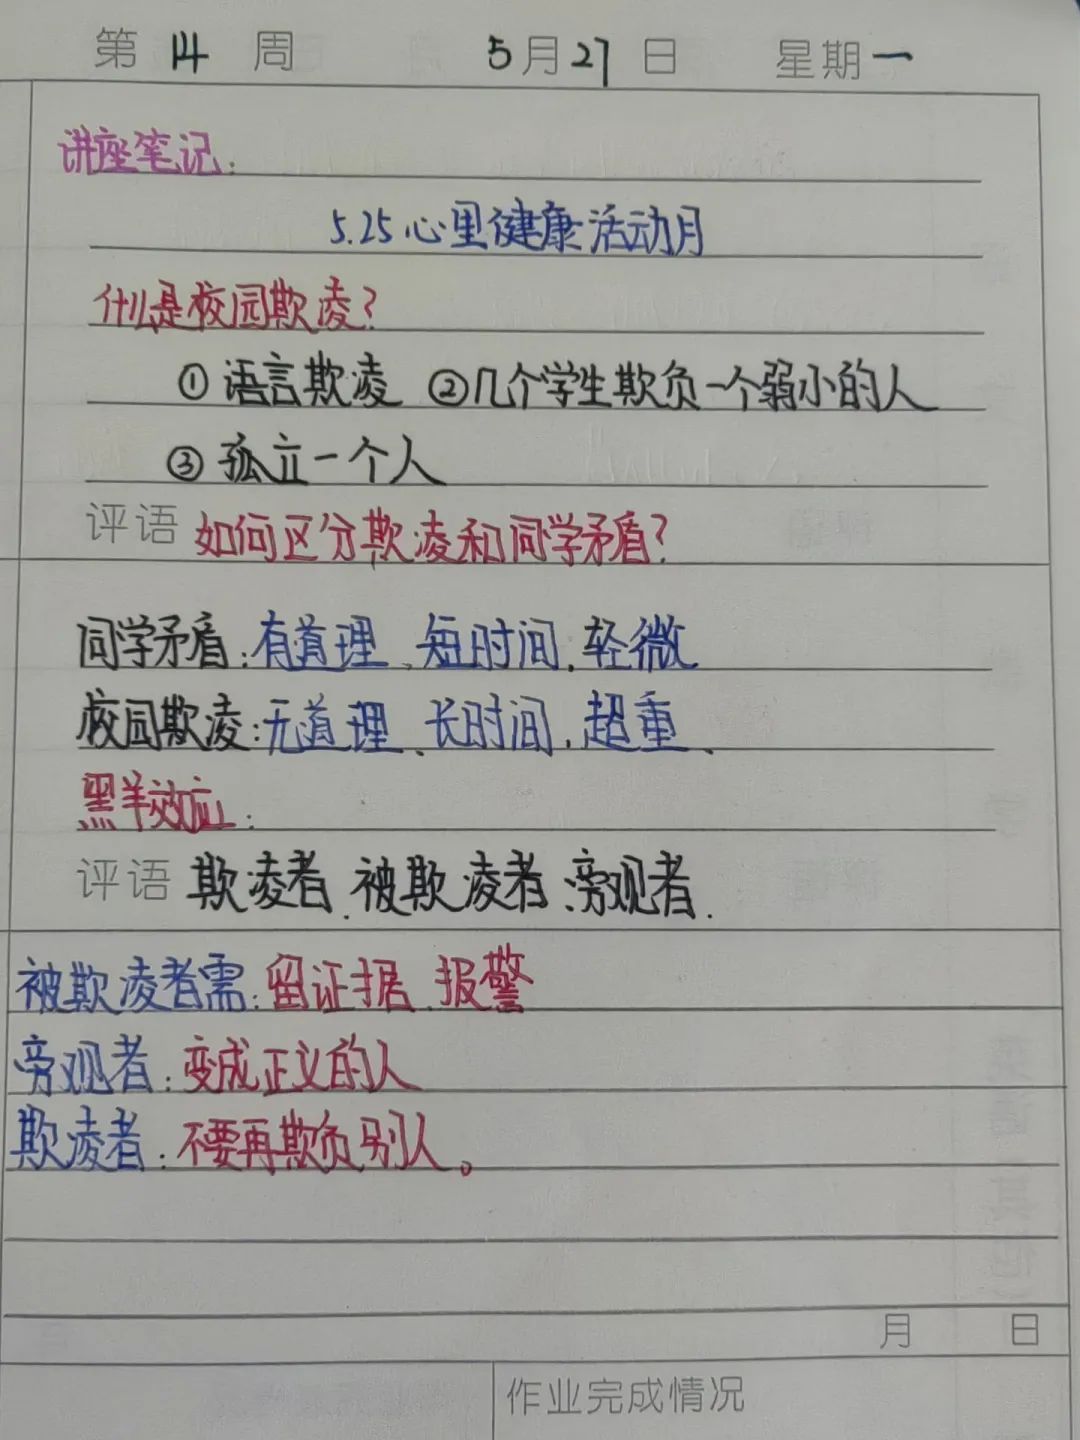 第 14 周 5月27日 星期一
讲座笔记:
5.25心里健康活动月
什么是校园欺凌?
①语言欺凌 ②几个学生欺负一个弱小的人
③孤立一个人
评语 如何区分欺凌和同学矛盾?
同学矛盾:有道理、短时间、轻微
校园欺凌:无道理、长时间、超重、
黑羊效应:
评语 欺凌者、被欺凌者、旁观者.
被欺凌者需:留证据、报警
旁观者:变成正义的人
欺凌者:不要再欺负别人。
月 日
作业完成情况